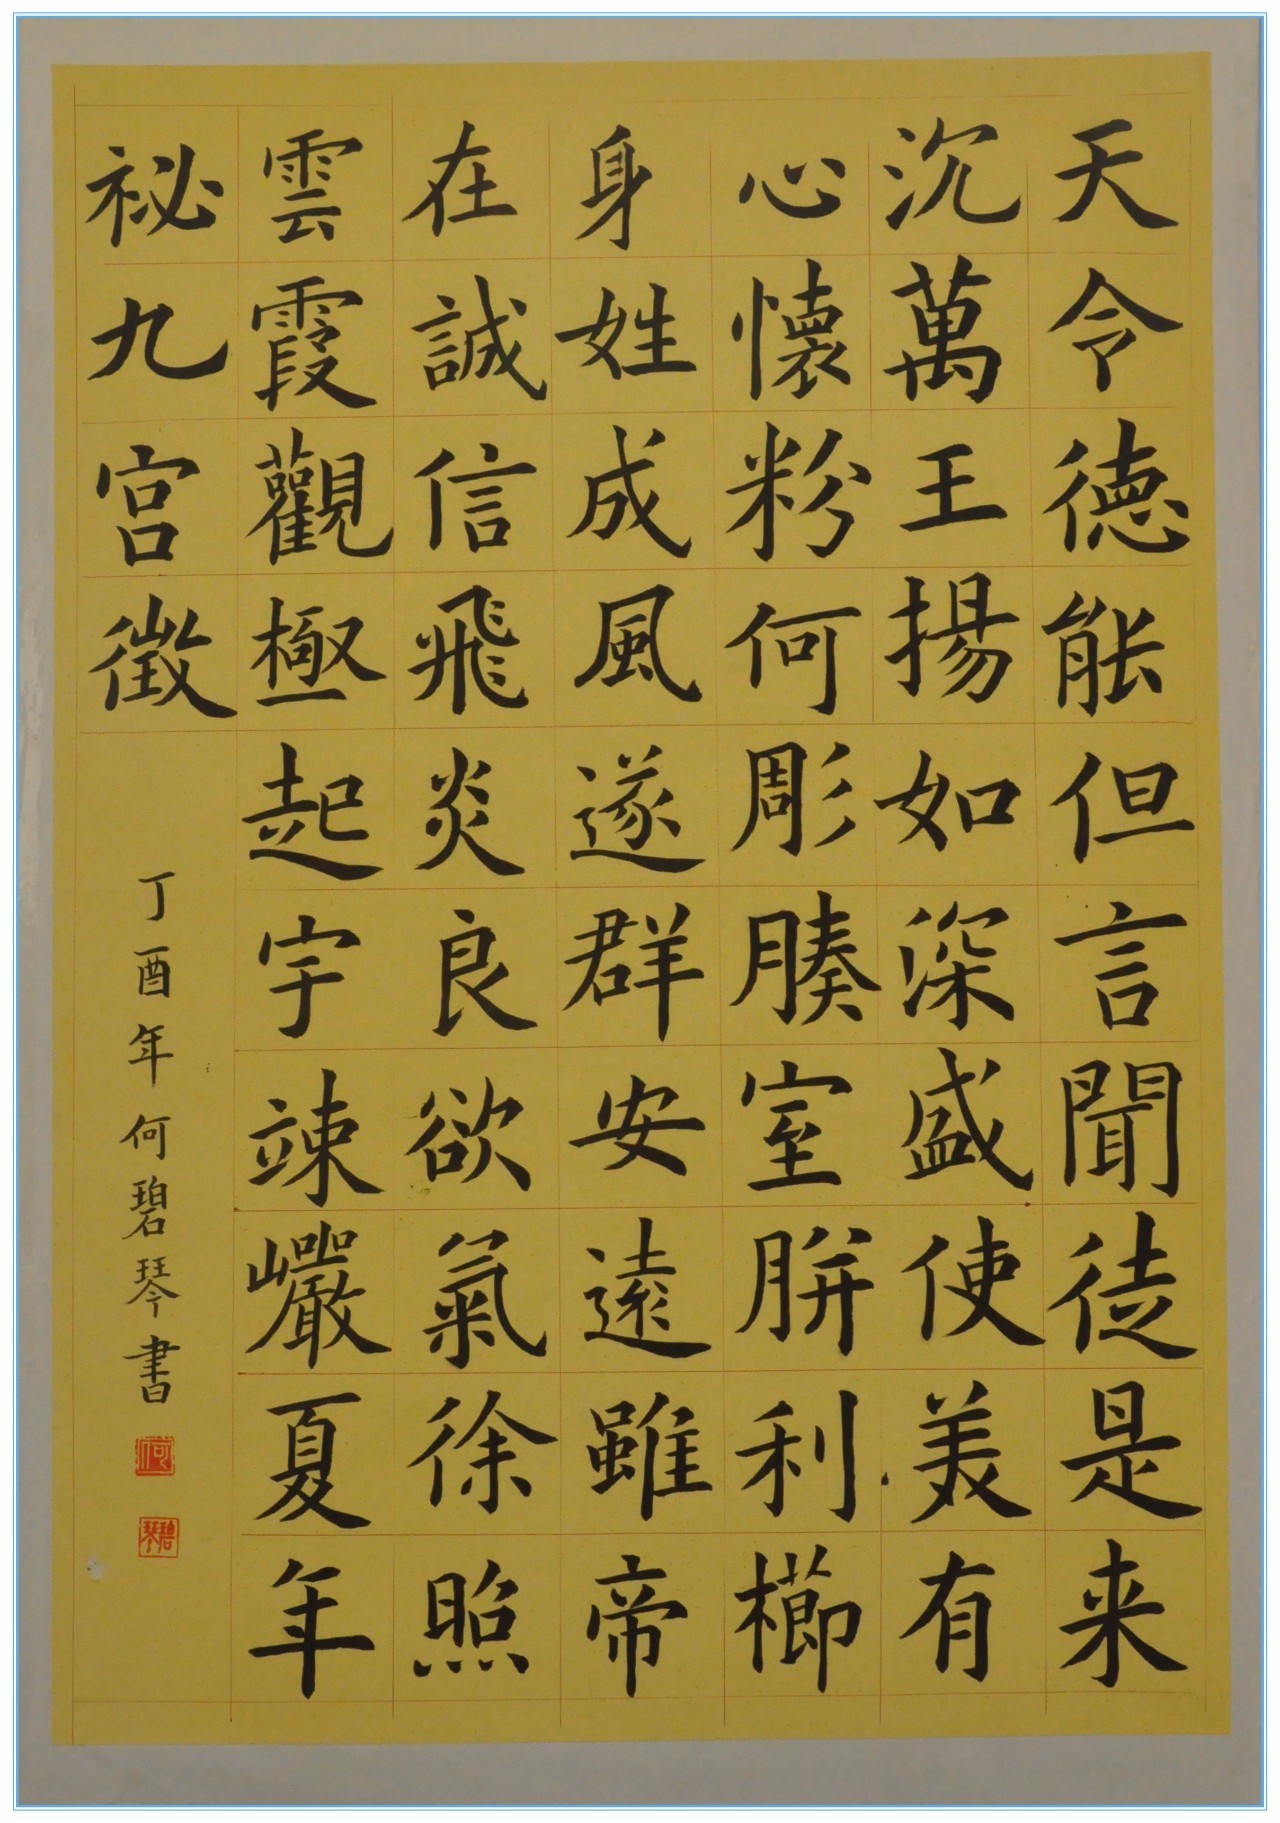 天令德能但言聞徒是来
沉萬王揚如深盛使美有
心懷粉何彫腠室胼利櫛
身姓成風遂群安遠雖帝
在誠信飛炎良欲氣徐照
雲霞觀極起宇竦巖夏年
祕九宮徵
丁酉年何碧琴書
何
碧琴